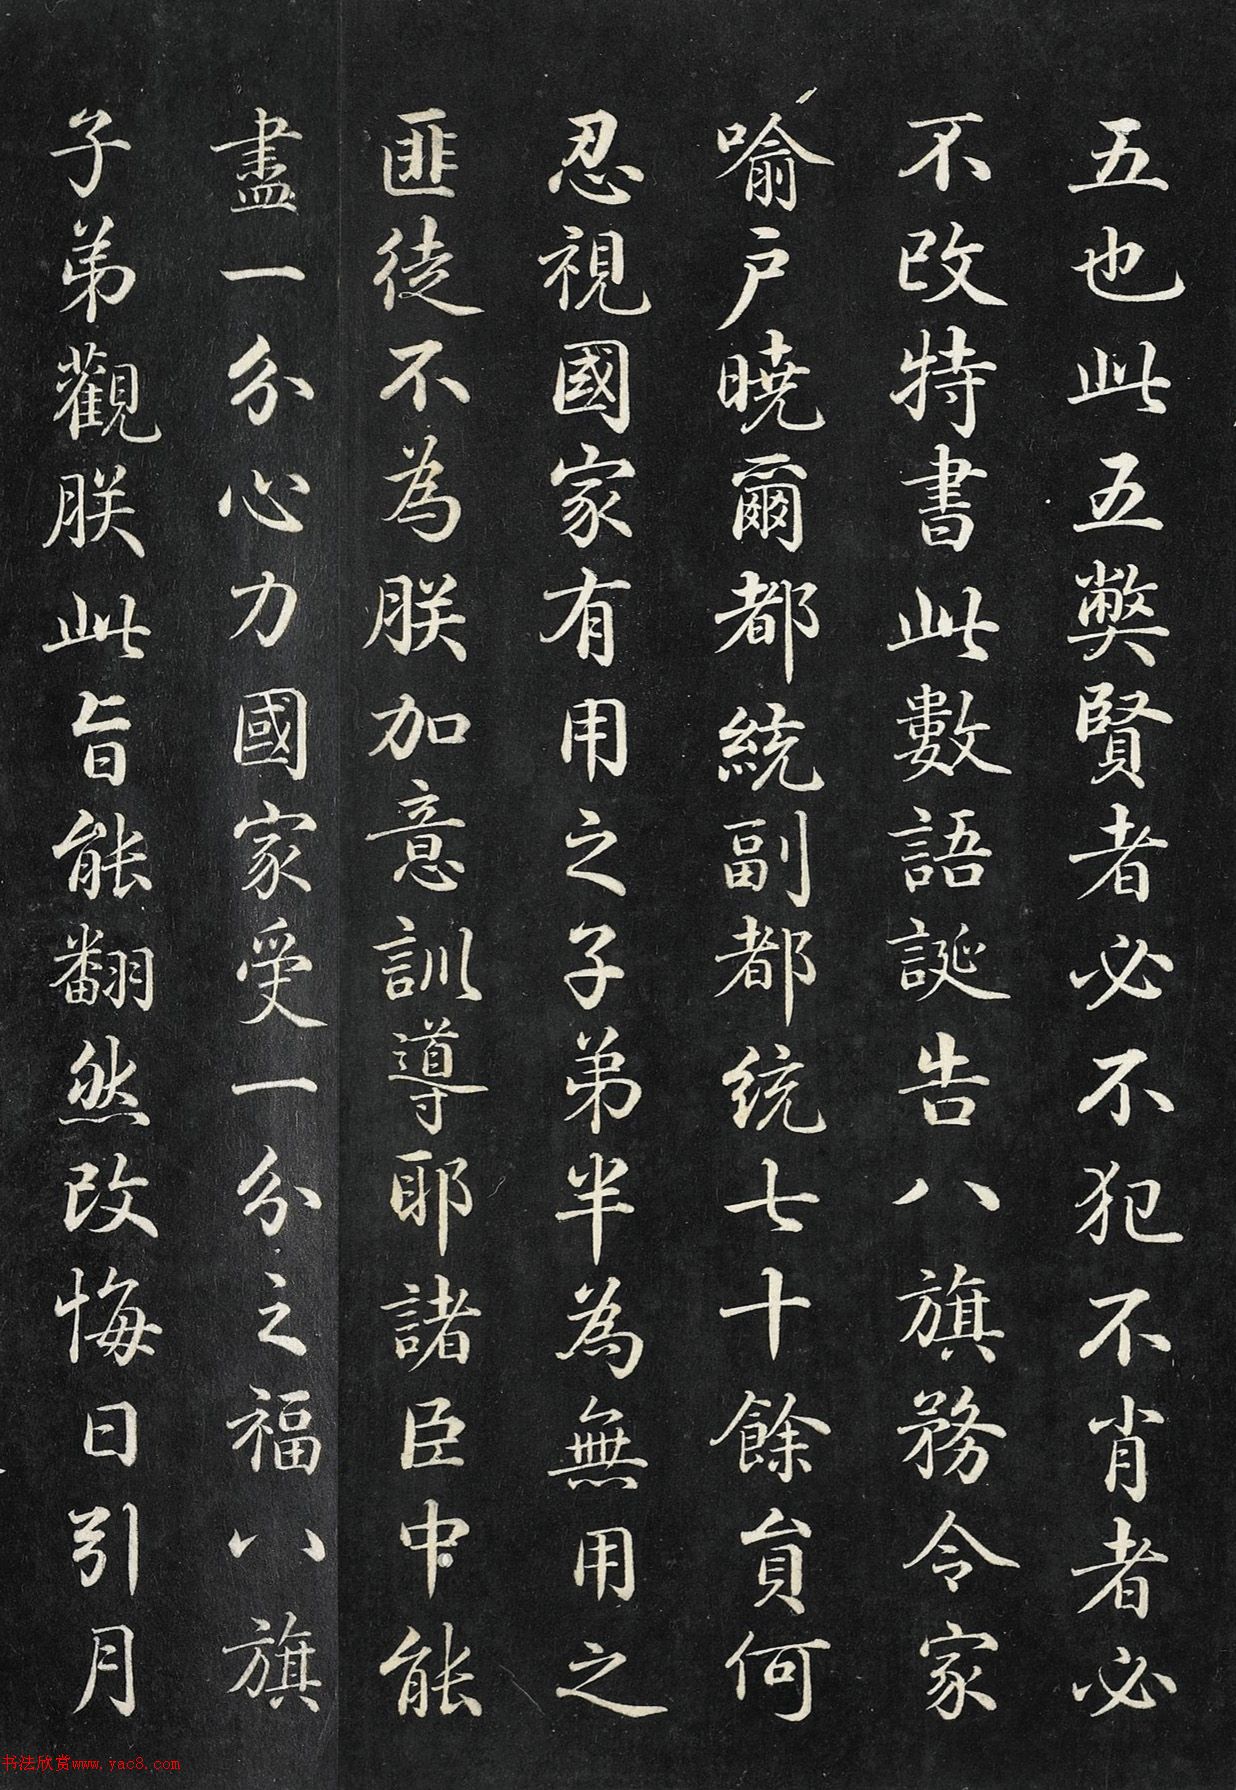 五也此五弊賢者必不犯不肖者必
不改特書此數語誕告八旗務令家
喻户曉爾都統副都统七十餘貟何
忍視國家有用之子弟半為無用之
匪徒不為朕加意訓導耶諸臣中能
盡一分心力國家受一分之福八旗
子弟觀朕此旨能翻然改悔日引月
书法欣赏www.yac8.com